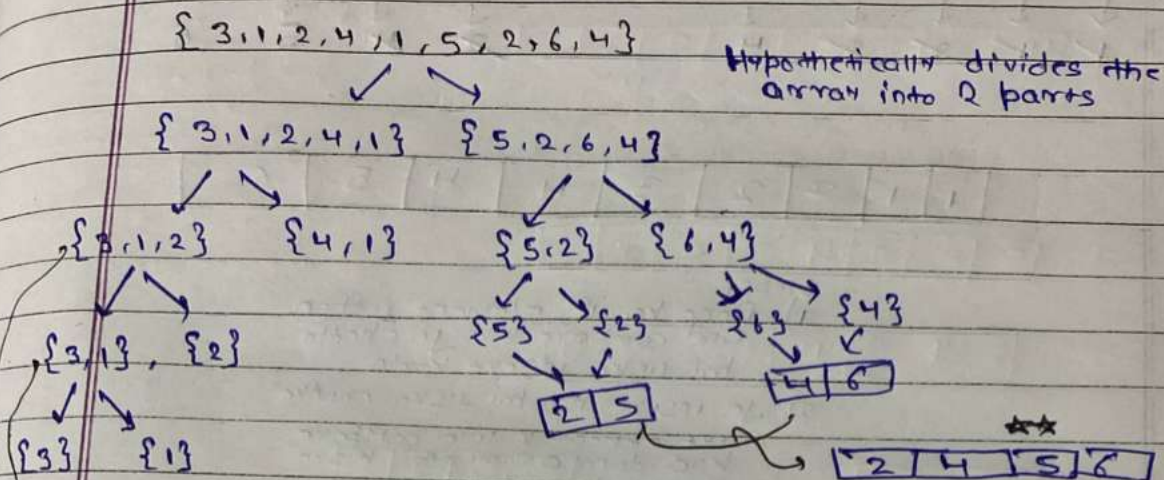 { 3, 1, 2, 4, 1, 5, 2, 6, 4 }
Hypothetically divides the
array into 2 parts
{ 3, 1, 2, 4, 1 } { 5, 2, 6, 4 }
{ 3, 1, 2 } { 4, 1 } { 5, 2 } { 6, 4 }
{ 5 } { 2 } { 6 } { 4 }
{ 3, 1 }, { 2 }
4 6
2 5
{ 3 } { 1 }
2 4 5 6